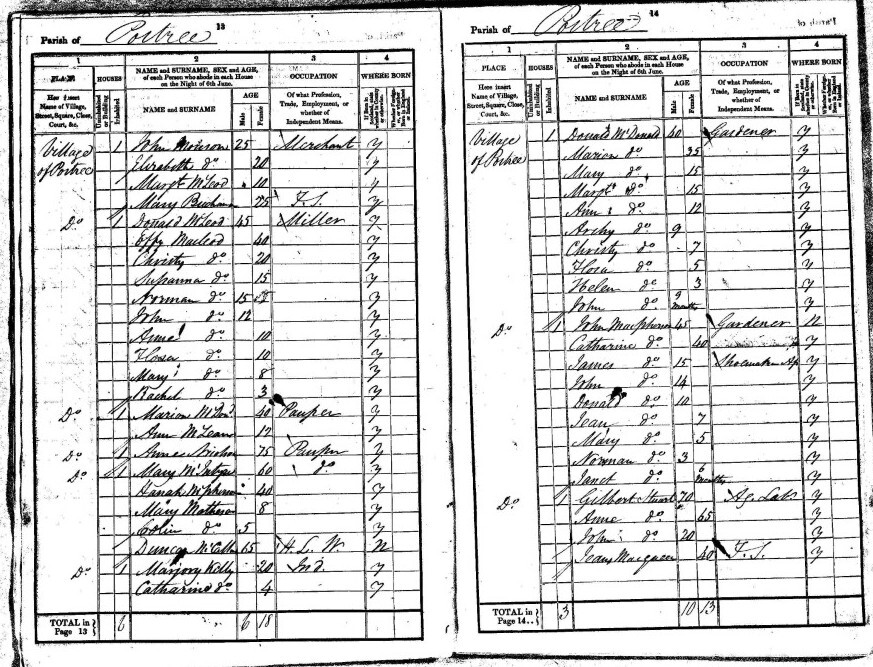 13
Parish of Portree
1 2 3 4
PLACE HOUSES NAME and SURNAME, SEX and AGE, OCCUPATION WHERE BORN
of each Person who abode in each House
on the Night of 6th June.
Here insert Name of Village, Street, Square, Close, Court, &c.
Uninhabited or Building
Inhabited
NAME and SURNAME
AGE
Male Female
Of what Profession, Trade, Employment, or whether of Independent Means.
Village 1 John 25 Merchant y
of Portree Elizabeth do 20 y
Margt McLeod 10 y
Mary 75 F.S. y
Do 1 Donald McLeod 45 Miller y
Effy Macleod 40 y
Christy do 20 y
Susanna do 15 y
Norman do 15 y
John do 12 y
Anne do 10 y
Flora do 10 y
Mary do 8 y
Rachel do 3 y
Do 1 Marion 40 Pauper y
Ann McLean 12 y
Do 1 75 Pauper y
Do 1 Mary 60 do y
Hanah 40 y
Mary Matheson 8 y
Colin do 5 y
Duncan 15 H.L.W. N
Do 1 Marjory Kelly 20 Ind. y
Catharine do 4 y
TOTAL in Page 13 6 6 18
14
Parish of Portree
1 2 3 4
PLACE HOUSES NAME and SURNAME, SEX and AGE, OCCUPATION WHERE BORN
of each Person who abode in each House
on the Night of 6th June.
Here insert Name of Village, Street, Square, Close, Court, &c.
Uninhabited or Building
Inhabited
NAME and SURNAME
AGE
Male Female
Of what Profession, Trade, Employment, or whether of Independent Means.
Village 1 Donald McDonald 40 Gardener y
of Portree Marion do 35 y
Mary do 15 y
Margt do 15 y
Ann do 12 y
Archy do 9 y
Christy do 7 y
Flora do 5 y
Helen do 3 y
John do 9 months y
Do 1 John Macpherson 45 Gardener N
Catharine do 40 y
James do 15 Shoemaker Ap y
John do 14 y
Donald do 10 y
Jean do 7 y
Mary do 5 y
Norman do 3 y
Janet do 6 months y
Do 1 Gilbert Stuart 70 Ag. Lab y
Anne do 65 y
John do 20 y
Jean Macqueen 40 F.S. y
TOTAL in Page 14 3 10 13